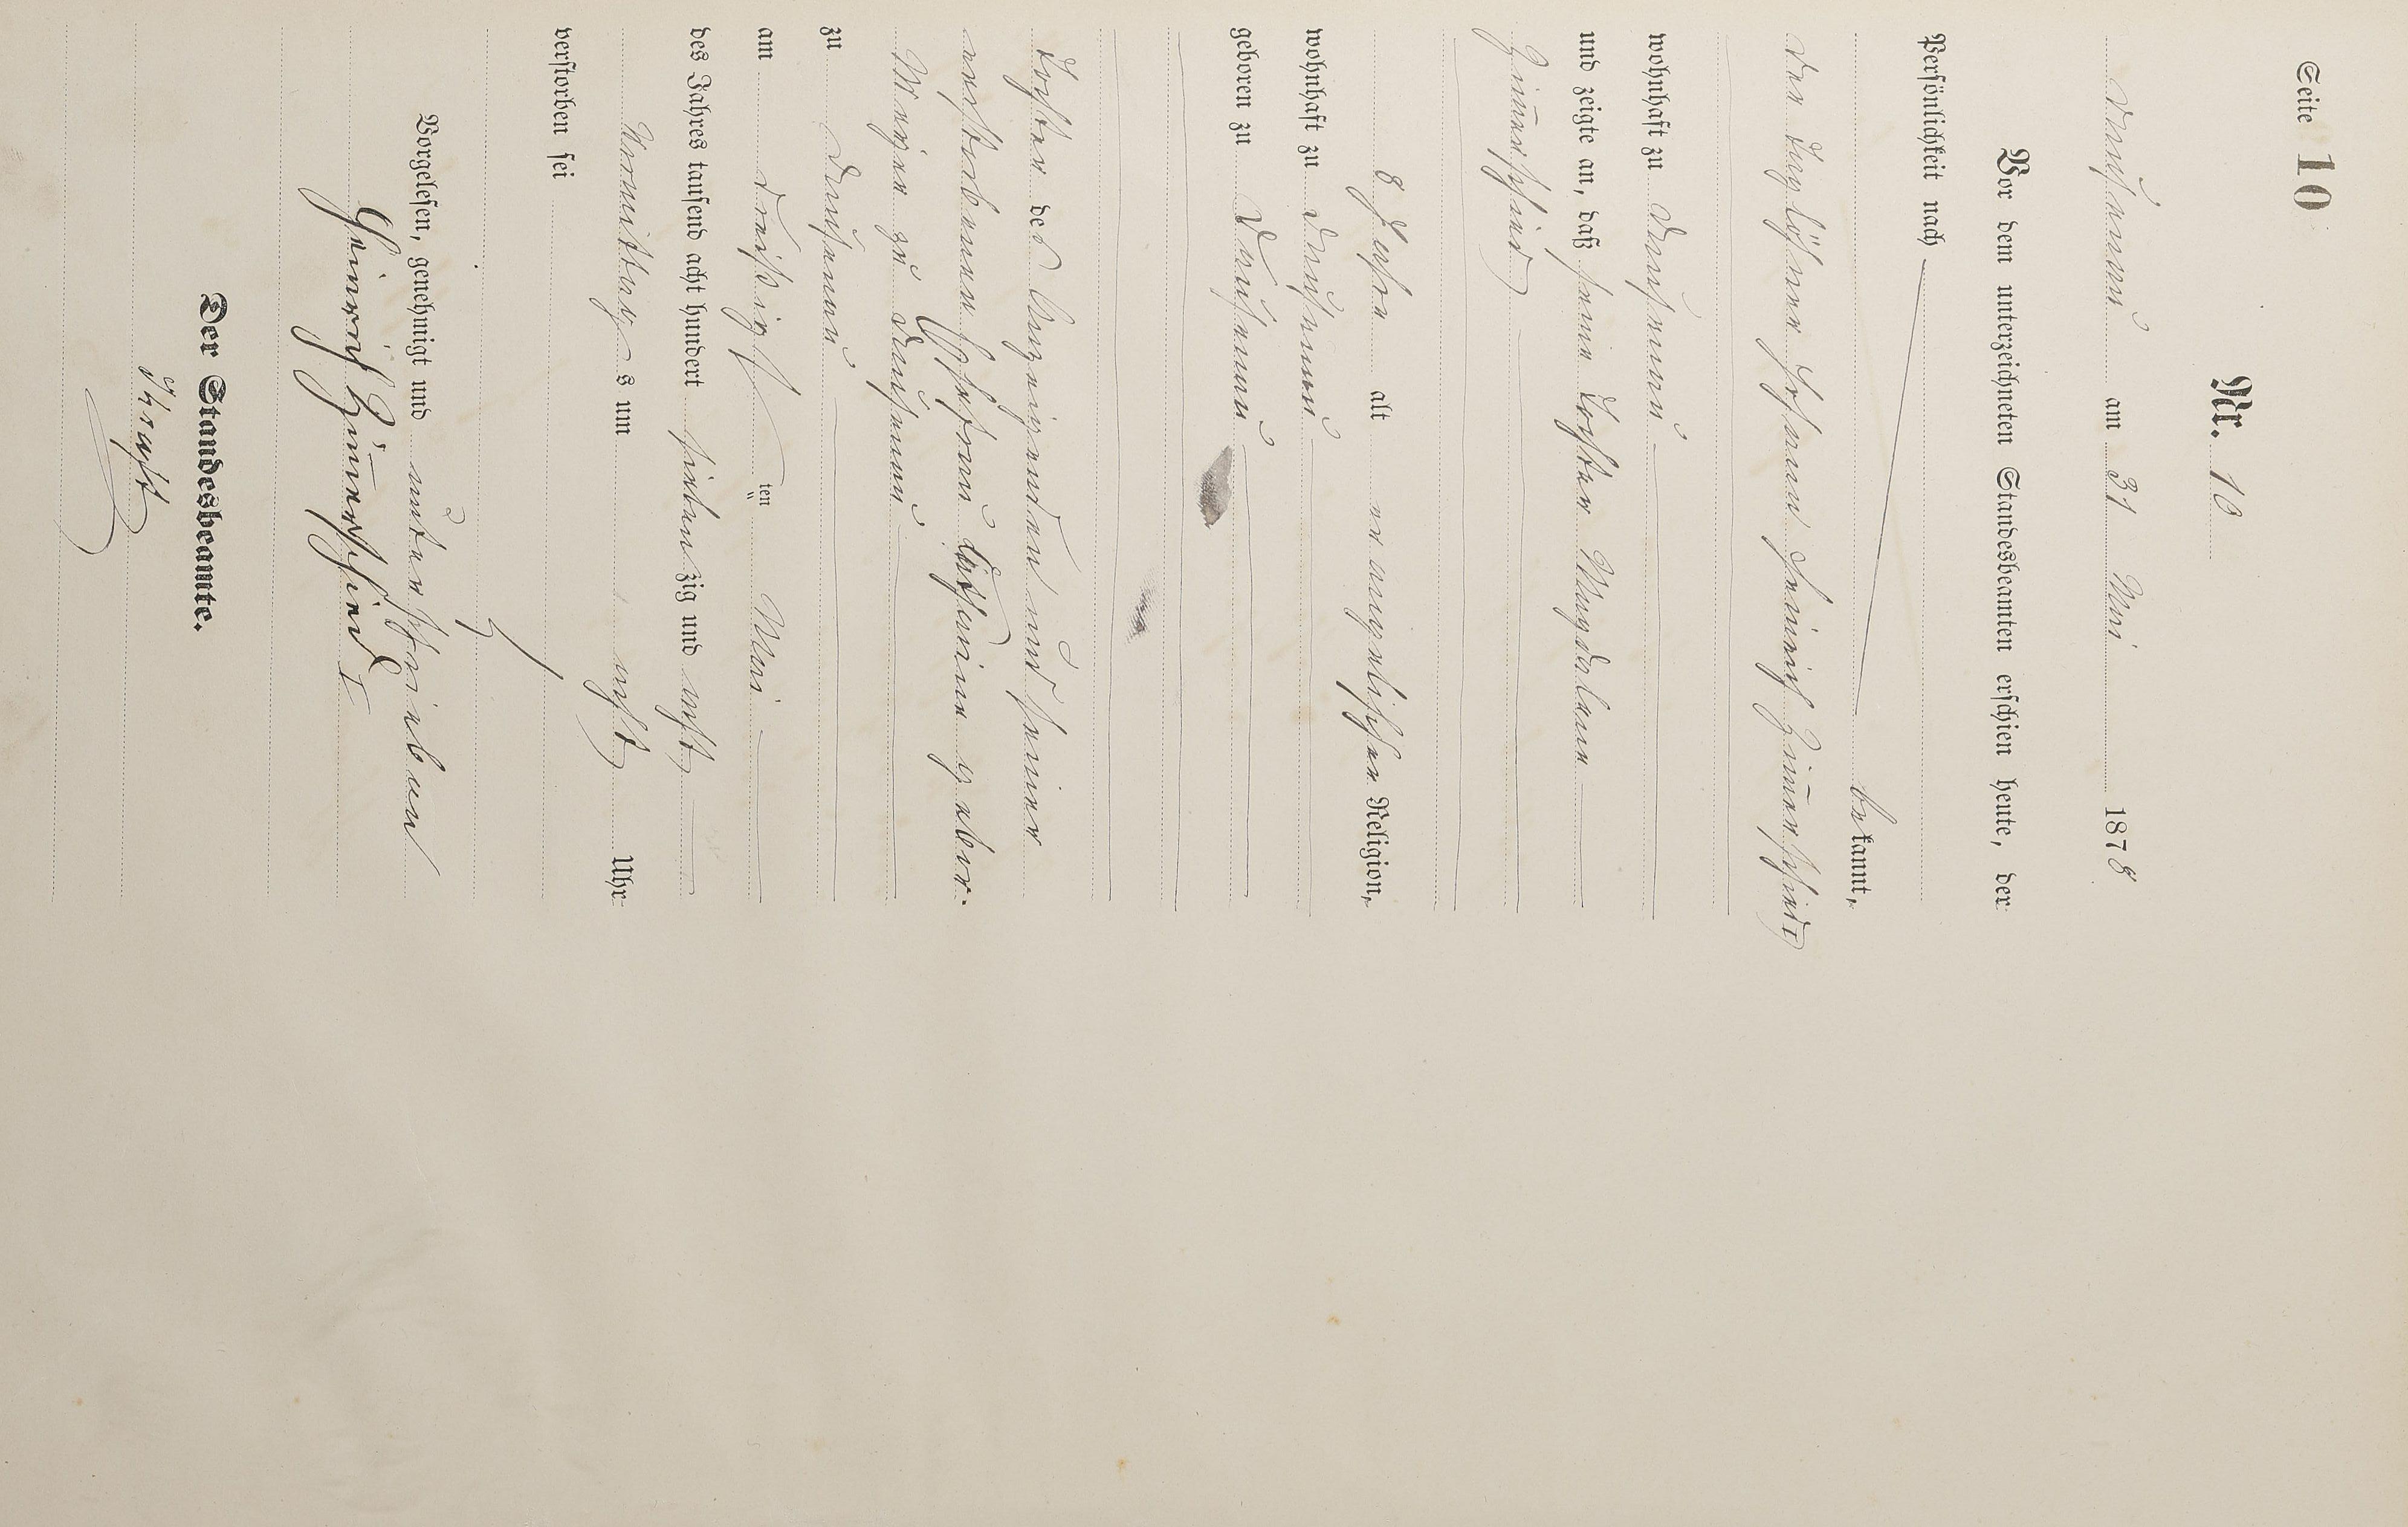 Seite 10
Nr. 10
Dausenau am 31 Mai 1878
Vor dem unterzeichneten Standesbeamten erschien heute, der
Persönlichkeit nach
bekannt,
der Taglöhner Johann Heinrich Zim̄erschied
wohnhaft zu Dausenau
und zeigte an, daß seine Tochter Magdalene
Zim̄erschied
8 Jahre alt evangelischer Religion,
wohnhaft zu Dausenau
geboren zu Dausenau
Tochter des Anzeigenden und seiner
verstorbenen Ehefrau gebor.
zu Dausenau
zu Dausenau
am dreißigsten Mai
des Jahres tausend acht hundert siebenzig und acht
Vormittags um acht Uhr
verstorben sei
Vorgelesen, genehmigt und unterschrieben
Heinrich Zim̄erschied I
Der Standesbeamte.